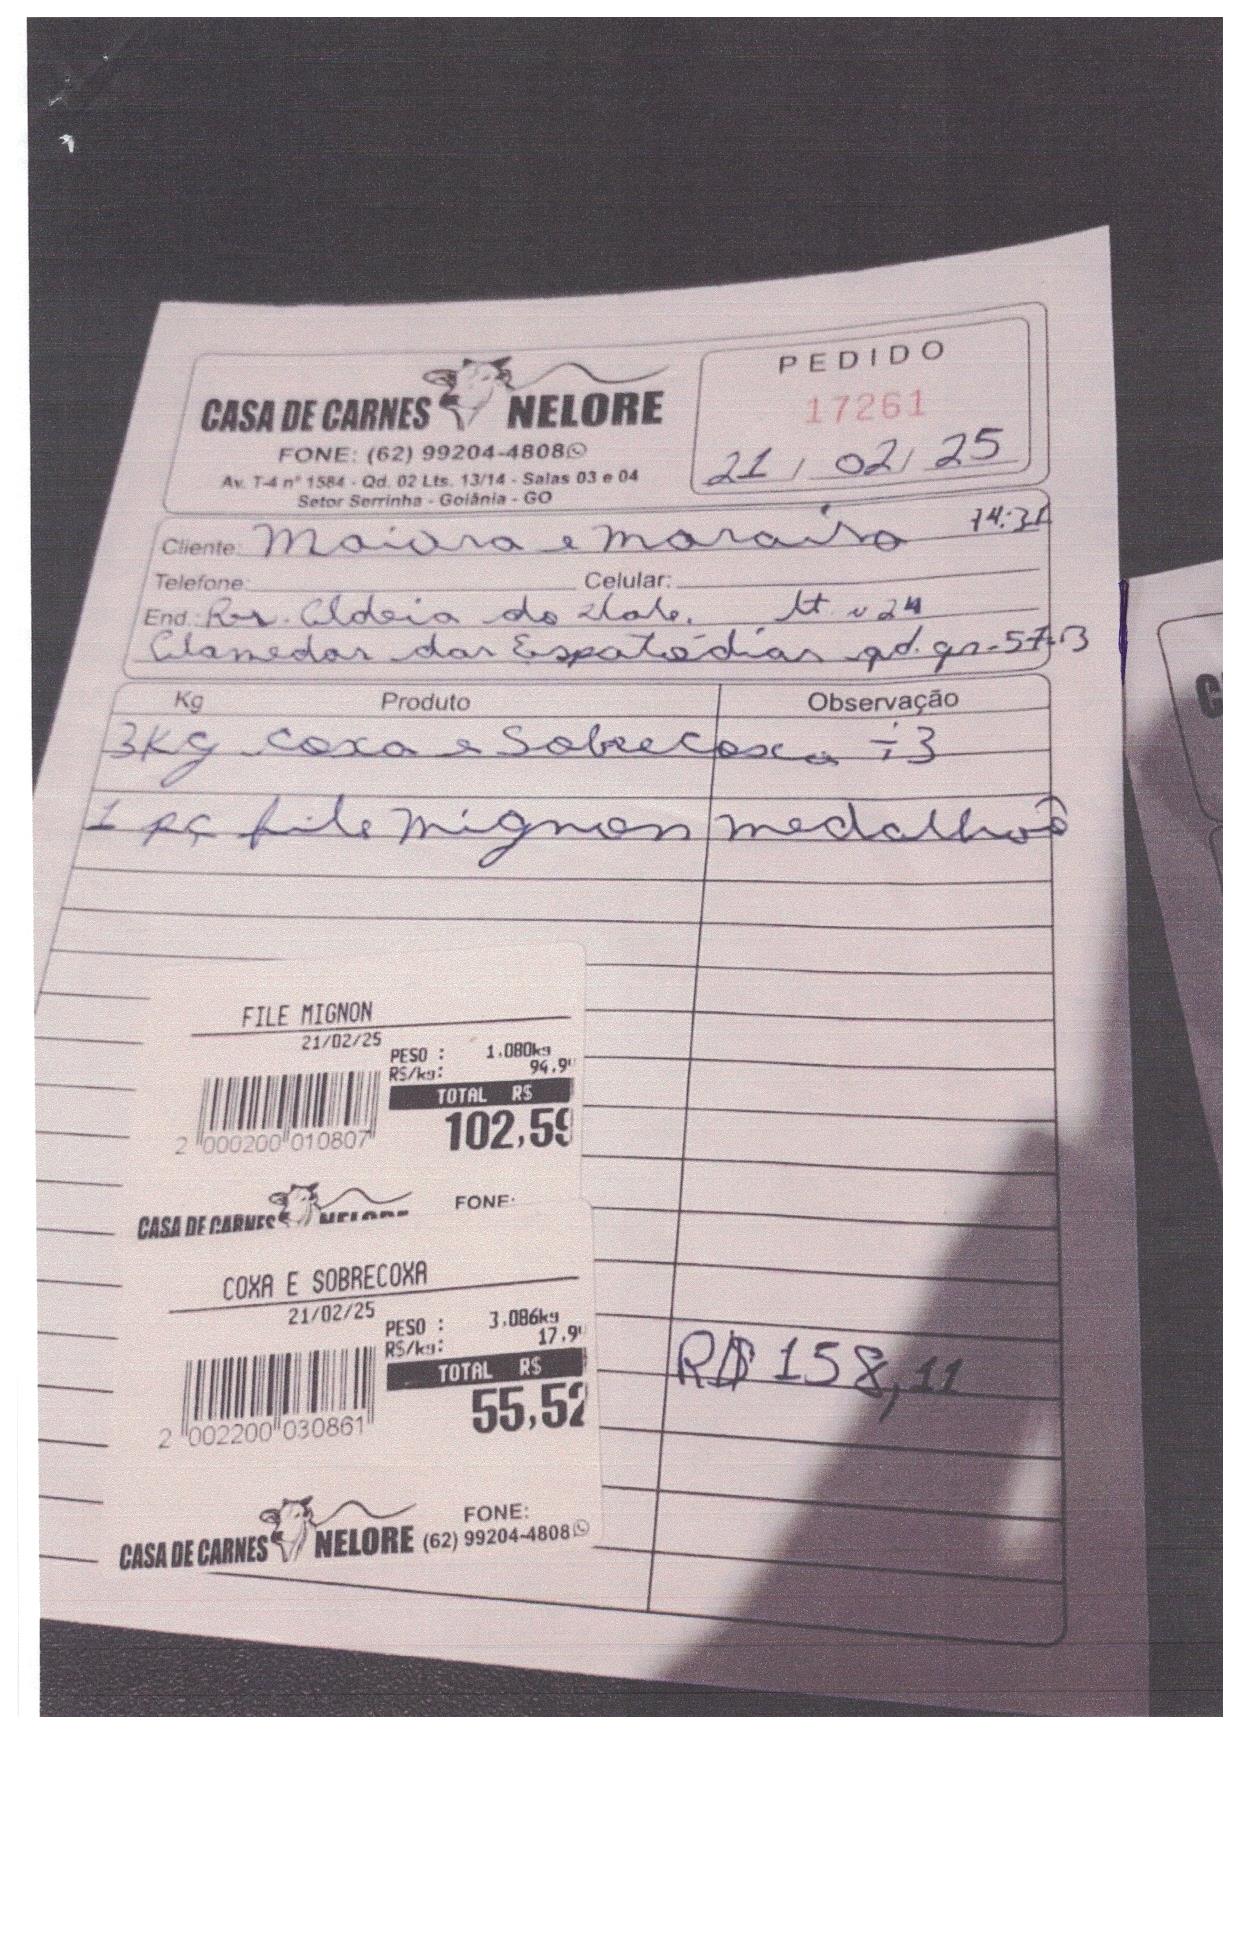 CASA DE CARNES NELORE
FONE: (62) 99204-4808
Av. T-4 nº 1584 - Qd. 02 Lts. 13/14 - Salas 03 e 04
Setor Serrinha - Goiânia - GO
PEDIDO
17261
21 / 02 / 25
Cliente: Maiara e maraisa 14:31
Telefone: Celular:
End.: Res. Aldeia do Vale. lt. 24
Alamedar dar Espatódias qd. 57-B
Kg Produto Observação
3Kg coxa e Sobrecoxa ÷3
1 pç file mignon medalhão
FILE MIGNON
21/02/25
PESO : 1.080kg
R$/kg: 94,9
TOTAL R$
102,59
2 000200 010807
CASA DE CARNES NELORE FONE:
COXA E SOBRECOXA
21/02/25
PESO : 3.086kg
R$/kg: 17,9
TOTAL R$
55,52
2 002200 030861
R$ 158,11
CASA DE CARNES NELORE FONE:
(62) 99204-4808